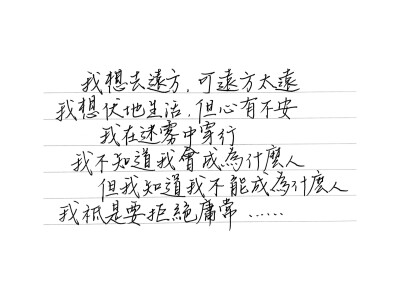 我想去遠方，可遠方太遠
我想伏地生活，但心有不安
我在迷霧中穿行
我不知道我會成為什麼人
但我知道我不能成為什麼人
我祇是要拒絕庸常……